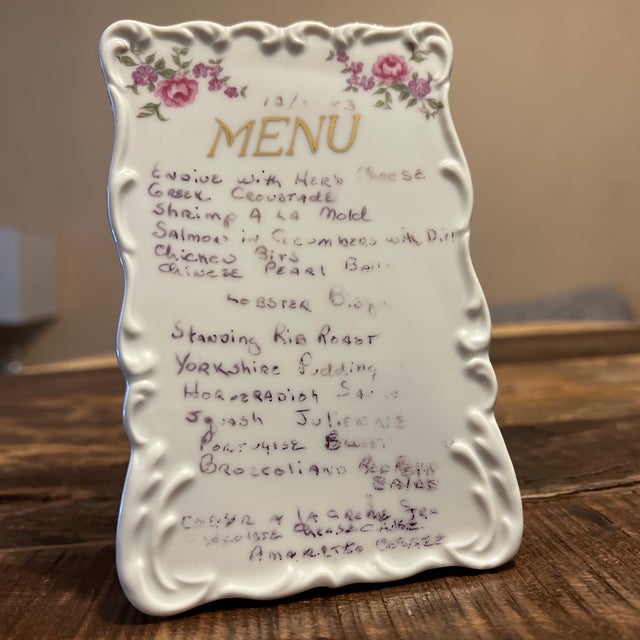 MENU
Endive with Herb Cheese
Greek Croustade
Shrimp A LA Mold
Salmon in Cucumbers with Dill
Chicken Bits
Chinese Pearl
Lobster
Standing Rib Roast
Yorkshire Pudding
Horseradish
Squash Julienne
Portugese
Broccoli and Red
Coeur A La Creme
Chocolate Cheese Cake
Amaretto